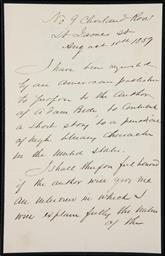 No 9 Cleveland Row
St James St
August 10th 1859
I have been requested
by an American publisher
to propose to the Author
of Adam Bede to contribute
a short story to a periodical
of high literary character
in the United States.
I shall therefore feel honored
if the author will give me
an interview in which I
will explain fully the nature
of the